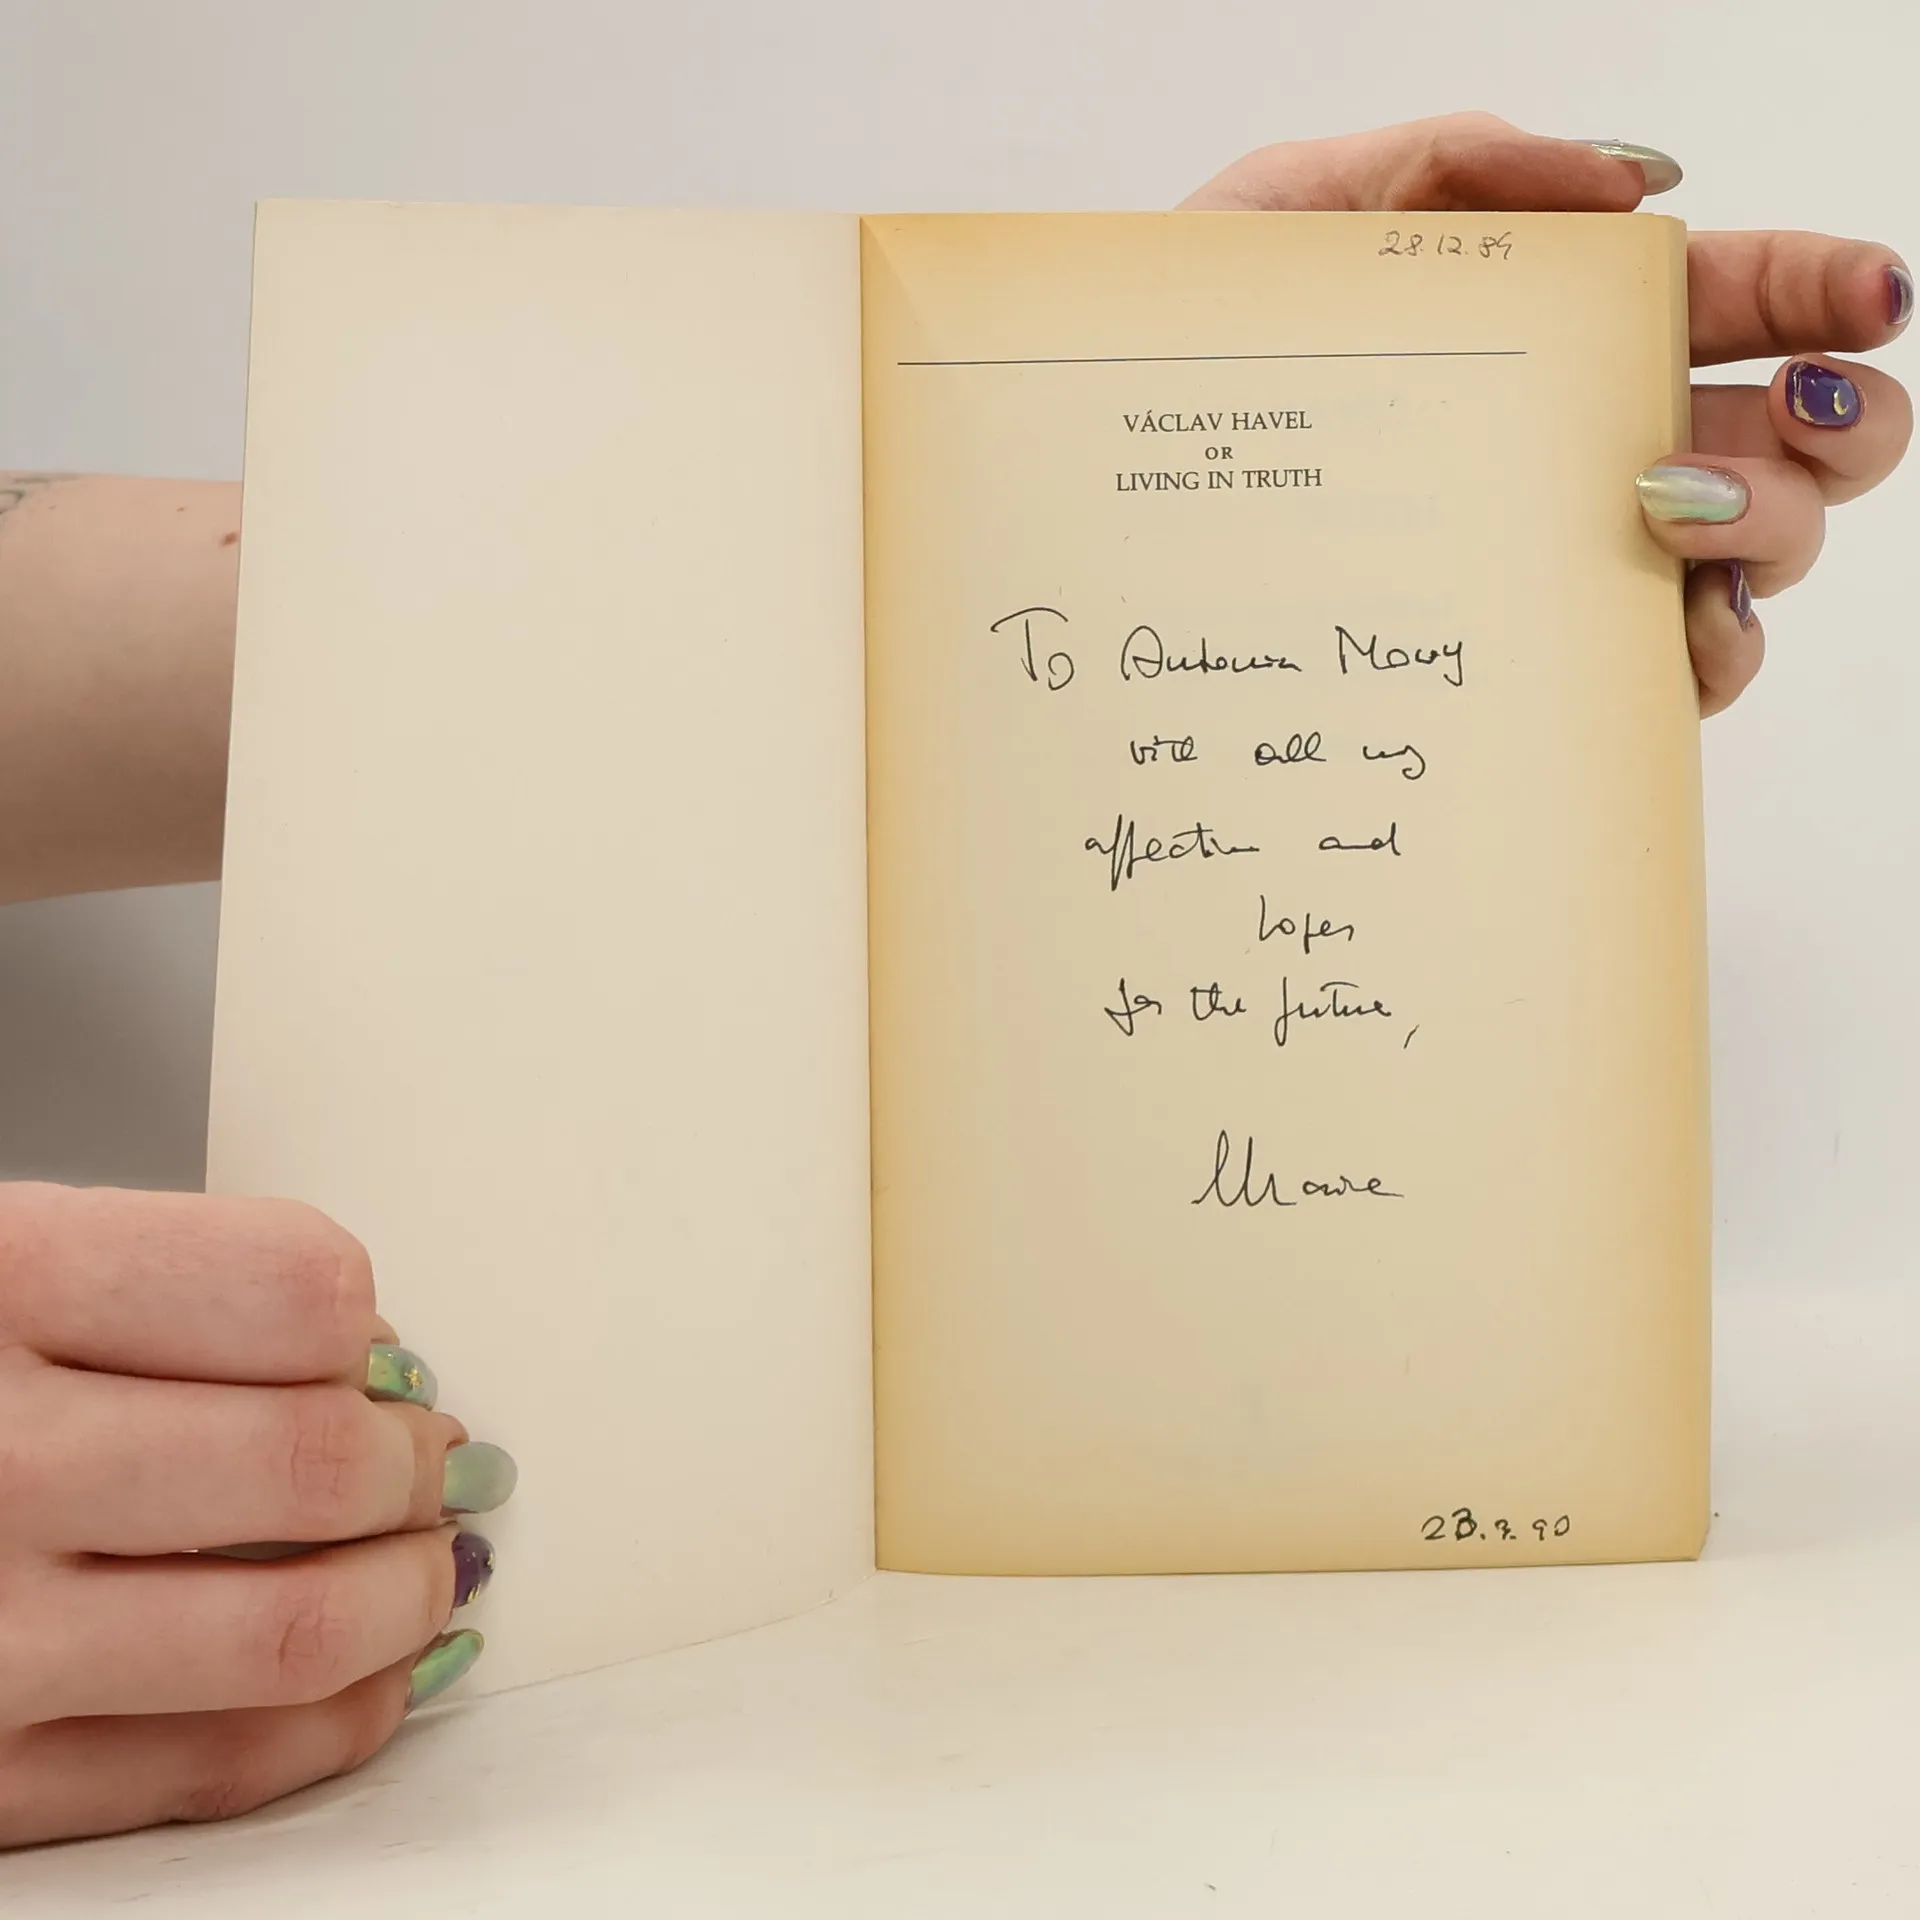 28.12.89
VÁCLAV HAVEL
OR
LIVING IN TRUTH
To Antonia
with all my
affection and
hopes
for the future,
90